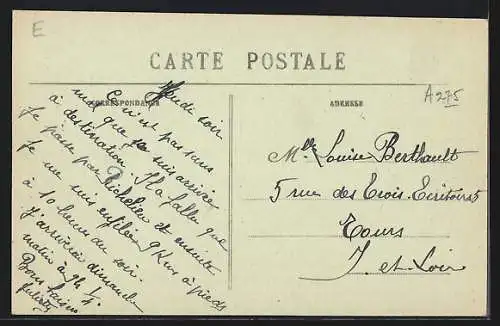 E
CARTE POSTALE
CORRESPONDANCE
ADRESSE
A275
Jeudi soir
Ce n'est pas sans
mal que je suis arrivée
à destination. Il a fallu que
je passe par Richelieu et ensuite
je me suis enfilée 9 Km à pieds
à 10 heures du soir.
J'arriverai dimanche
matin à 9h ½.
Bons baisers
Mlle Louise Berthault
5 rue des Trois-Ecritoires
Tours
I. et-Loir